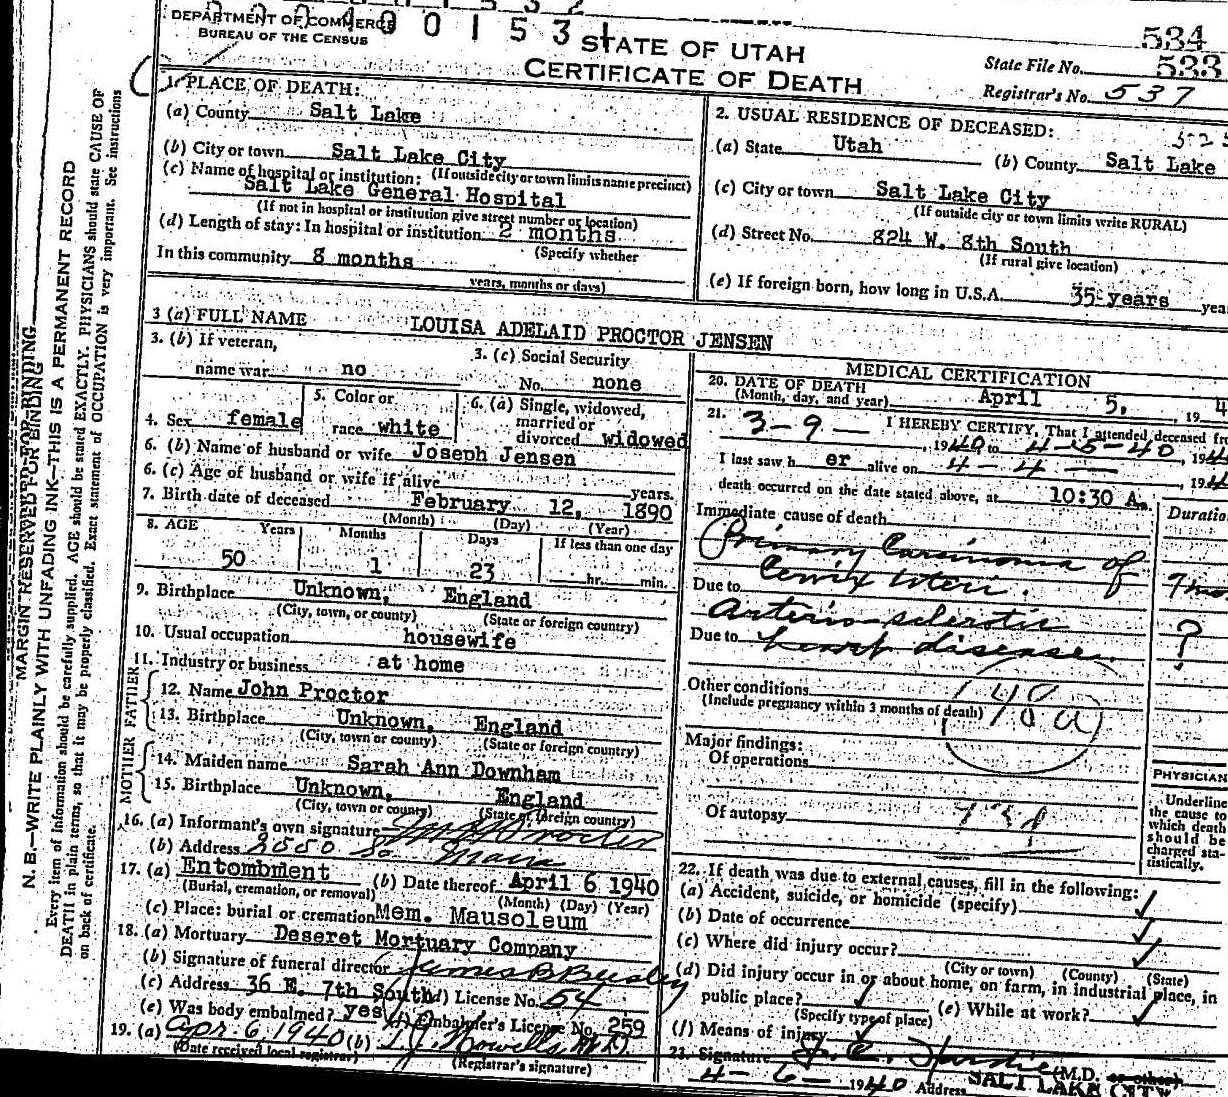 DEPARTMENT OF COMMERCE
BUREAU OF THE CENSUS
STATE OF UTAH
CERTIFICATE OF DEATH
534
State File No. 533
Registrar's No. 537
MARGIN RESERVED FOR BINDING
N. B.—WRITE PLAINLY WITH UNFADING INK—THIS IS A PERMANENT RECORD
Every item of information should be carefully supplied. AGE should be stated EXACTLY. PHYSICIANS should state CAUSE OF
DEATH in plain terms, so that it may be properly classified. Exact statement of OCCUPATION is very important. See instructions
on back of certificate.
1. PLACE OF DEATH:
(a) County Salt Lake
(b) City or town Salt Lake City
(If outside city or town limits name precinct)
(c) Name of hospital or institution:
Salt Lake General Hospital
(If not in hospital or institution give street number or location)
(d) Length of stay: In hospital or institution 2 months
(Specify whether
In this community 8 months
years, months or days)
2. USUAL RESIDENCE OF DECEASED:
(a) State Utah (b) County Salt Lake
(c) City or town Salt Lake City
(If outside city or town limits write RURAL)
(d) Street No. 824 W. 8th South
(If rural give location)
(e) If foreign born, how long in U.S.A. 35 years
3 (a) FULL NAME LOUISA ADELAID PROCTOR JENSEN
3. (b) If veteran,
name war no
3. (c) Social Security
No. none
4. Sex female
5. Color or
race white
6. (a) Single, widowed,
married or
divorced widowed
6. (b) Name of husband or wife Joseph Jensen
6. (c) Age of husband or wife if alive years.
7. Birth date of deceased February 12, 1890
(Month) (Day) (Year)
8. AGE Years Months Days If less than one day
50 1 23 hr. min.
9. Birthplace Unknown, England
(City, town, or county) (State or foreign country)
10. Usual occupation housewife
11. Industry or business at home
FATHER
12. Name John Proctor
13. Birthplace Unknown, England
(City, town or county) (State or foreign country)
MOTHER
14. Maiden name Sarah Ann Downham
15. Birthplace Unknown, England
(City, town or county) (State or foreign country)
16. (a) Informant's own signature Proctor
(b) Address 2550 So. Main
17. (a) Entombment (b) Date thereof April 6 1940
(Burial, cremation, or removal) (Month) (Day) (Year)
(c) Place: burial or cremation Mem. Mausoleum
18. (a) Mortuary Deseret Mortuary Company
(b) Signature of funeral director James B Beesley
(c) Address 36 E. 7th South (d) License No. 54
(e) Was body embalmed? yes (f) Embalmer's License No. 259
19. (a) Apr. 6, 1940 (b) Howells M.D.
(Date received local registrar) (Registrar's signature)
MEDICAL CERTIFICATION
20. DATE OF DEATH
(Month, day, and year) April 5, 19 4
21. I HEREBY CERTIFY, That I attended deceased fr
3-9- , 1940 to 4-5-40 , 194
I last saw h er alive on 4-4- , 194
death occurred on the date stated above, at 10:30 A.
Immediate cause of death Duration
Primary Carcinoma of
Due to Cervix Uteri.
Arterio-sclerotic
Due to heart disease. ?
Other conditions
(Include pregnancy within 3 months of death)
48 a
Major findings:
Of operations
Of autopsy
PHYSICIAN
Underline
the cause to
which death
should be
charged sta-
tistically.
22. If death was due to external causes, fill in the following:
(a) Accident, suicide, or homicide (specify)
(b) Date of occurrence
(c) Where did injury occur?
(City or town) (County) (State)
(d) Did injury occur in or about home, on farm, in industrial place, in
public place? (e) While at work?
(Specify type of place)
(f) Means of injury
23. Signature (M.D. or other)
4-6-1940 Address SALT LAKE CITY